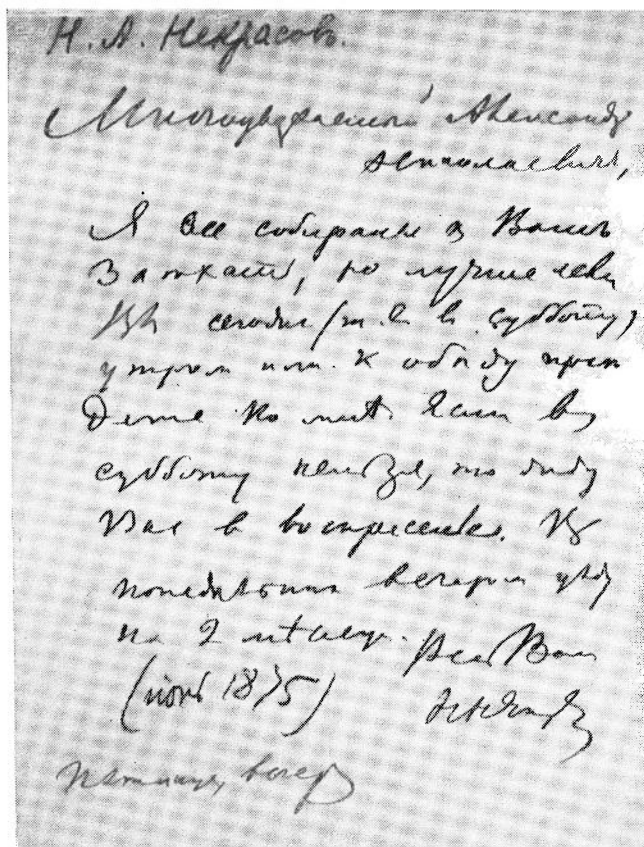 Н. А. Некрасовъ.
Многоуважаемый Александръ
Николаевичъ,
Я все собирался къ Вамъ
Заѣхать, но лучше если
Вы сегодня (т. е. въ субботу)
утромъ или къ обѣду пріѣ
дете ко мнѣ. Если въ
субботу нельзя, то жду
Васъ въ воскресенье. Въ
понедѣльникъ вечеромъ уѣду
на 2 мѣсяца. Весь Вашъ
(июнь 1875) Н. Некрасовъ
пятница, вечеръ